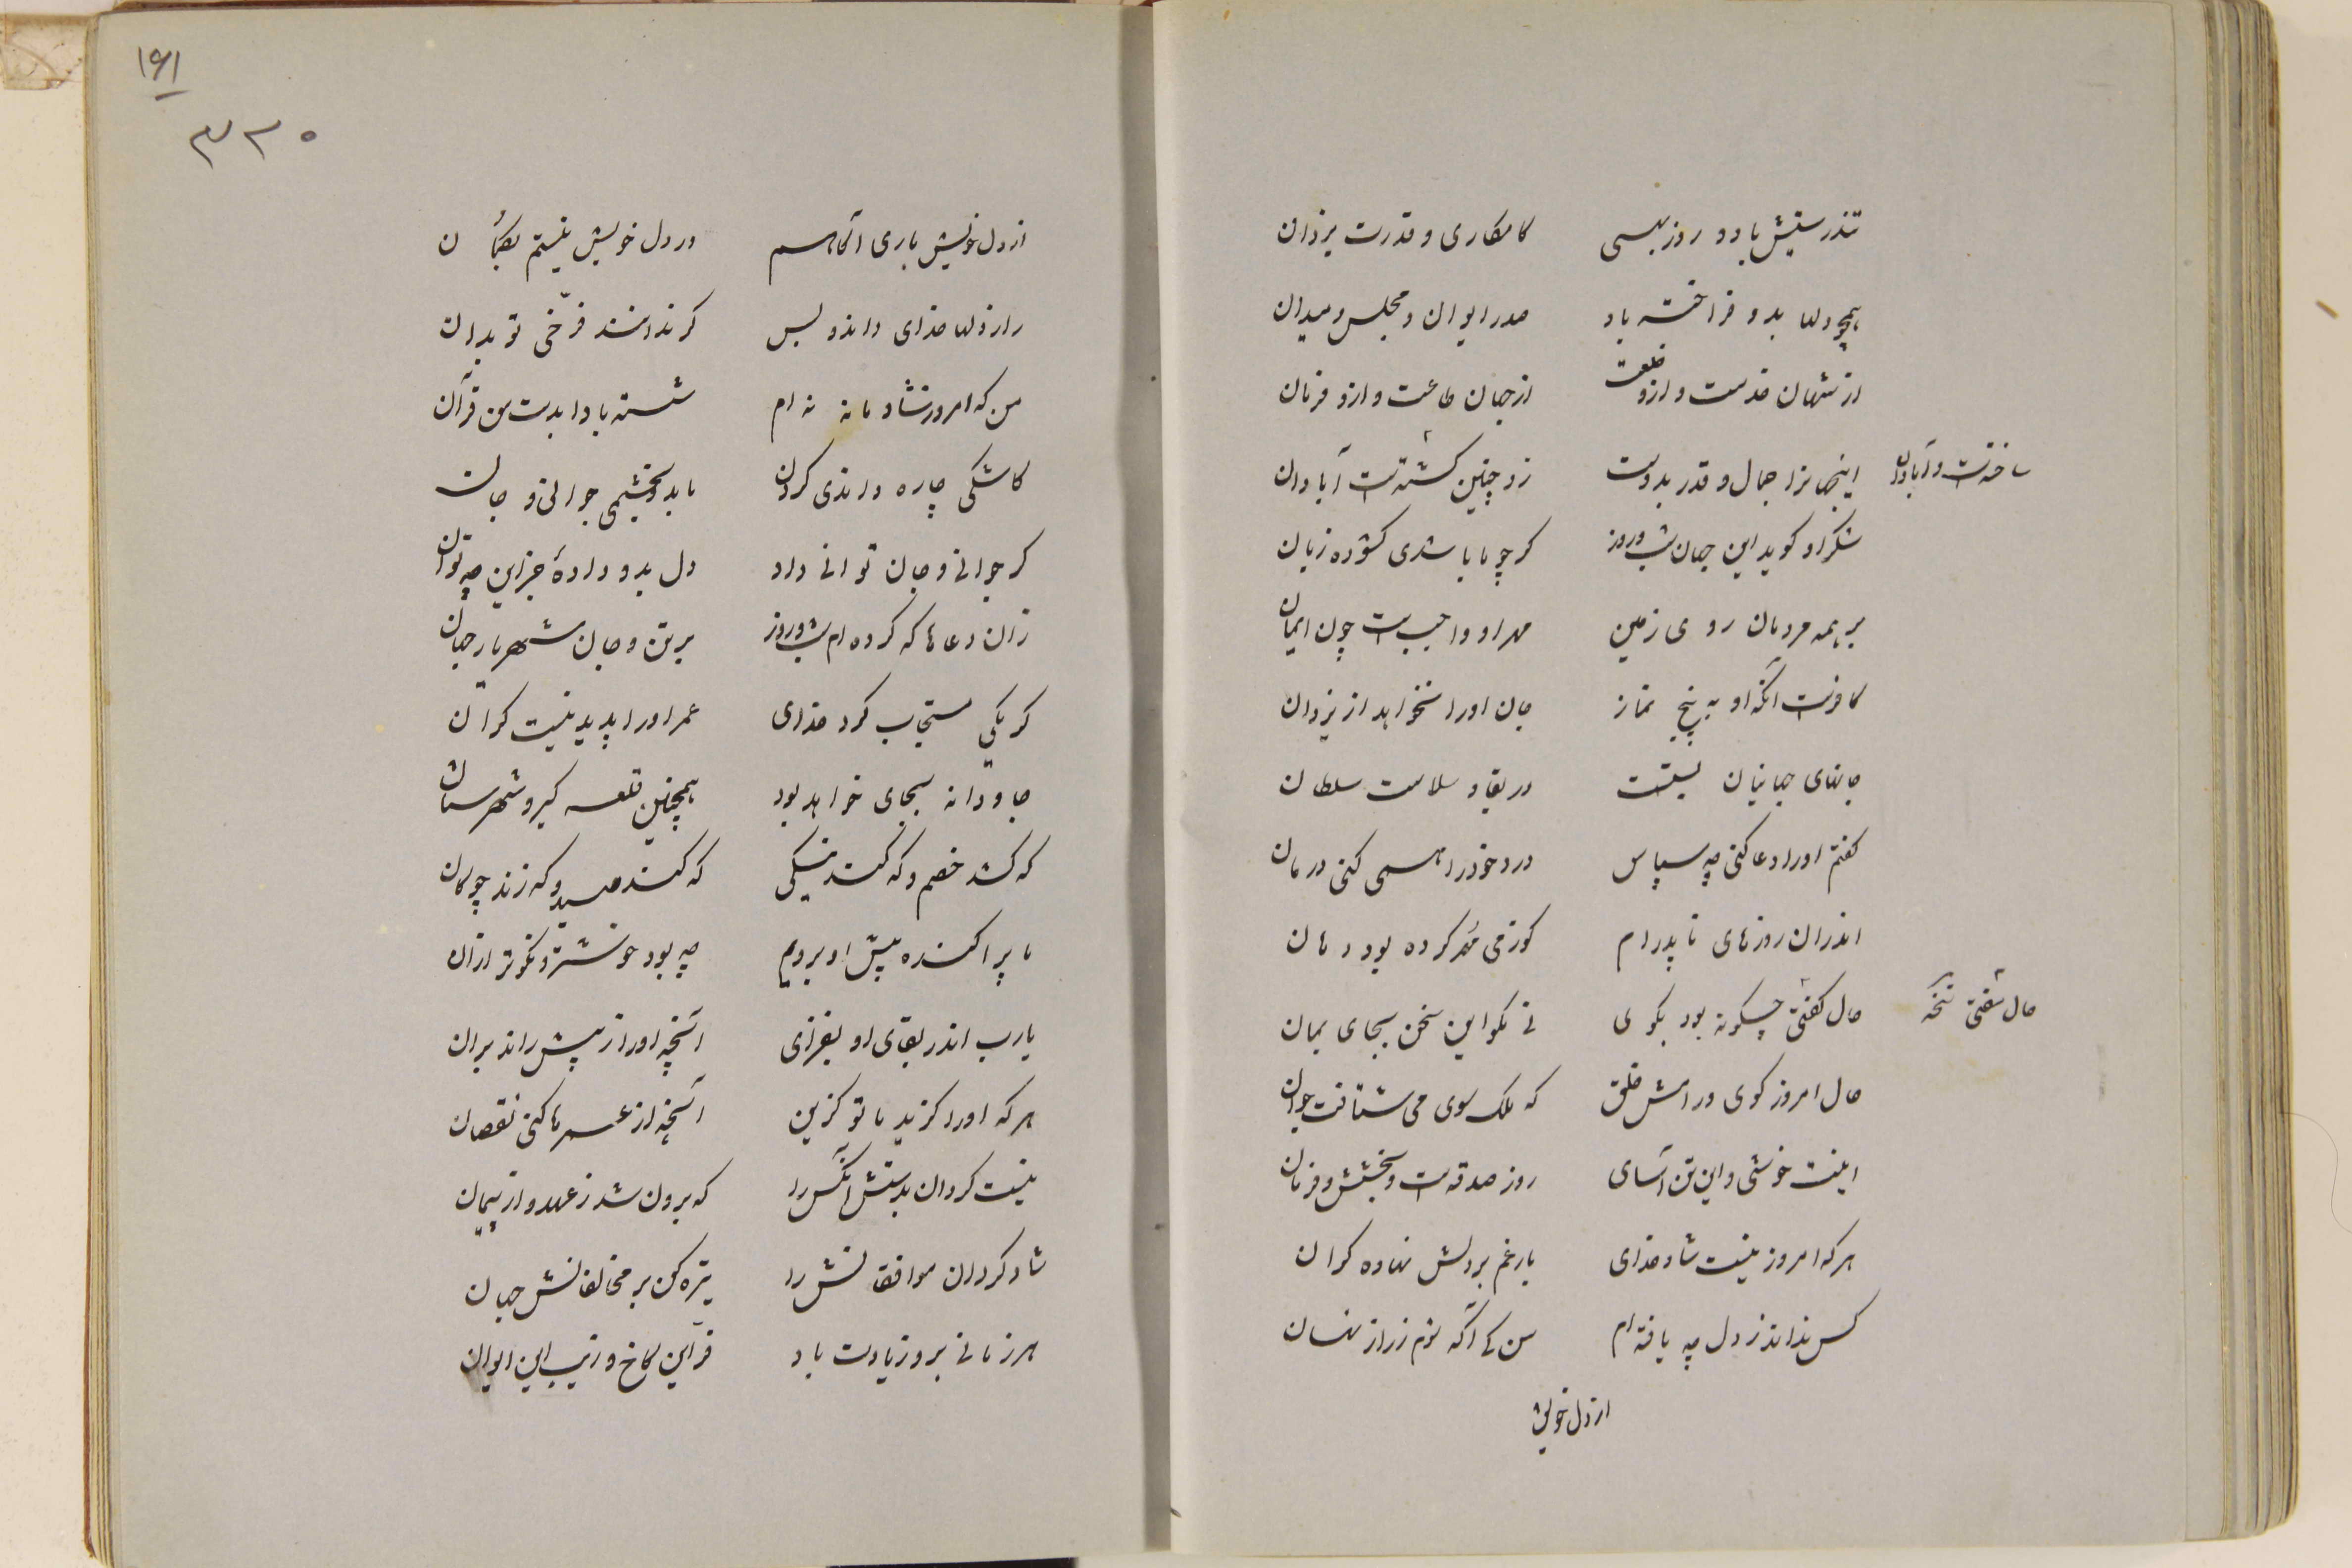 تندرستیش باد و روزبهی کامکاری و قدرت یزدان
همچو دلها بدو فراخته باد صدر ایوان و مجلس و میدان
از شهان خدمت و ازو خلعت از جهان طاعت و ازو فرمان
اینجهانرا جمال و قدر بدوست زو چنین گشتست آبادان
ساختست و آبادان
شکر او گوید این جهان شب و روز گر چو ما باشدی گشوده زبان
بر همه مردمان روی زمین مهر او واجبست چون ایمان
کافرست آنکه او به پنج نماز جان او را نخواهد از یزدان
جانهای جهانیان بستست در بقا و سلامت سلطان
گفتم او را دعا کنی چه سپاس درد خود را همی کنی درمان
اندران روزهای ناپدرام کو ز می مهر کرده بود دهان
حال گفتی چگونه بود بگوی نی مگو این سخن بجای بمان
حال شفتی نسخه
حال امروز گوی و رامش خلق که ملک سوی می شتافت جوان
اینت خوشی و این تن آسای روز صدقه است و بخشش و فرمان
هر که امروز نیست شاد خدای بار غم بر دلش نهاده گران
کس نداند ز دل چه یافته ام من کی آگه توم ز راز نهان
از دل خویش
۱۶۱
۳۲۰
از دل خویش باری آگاهم در دل خویش نیستم بگمان
راز دلها خدای داند و بس گر ندانند فرخی تو بدان
من که امروز شادمانه نه ام شسته بادا بدست من قرآن
کاشکی چاره داندی کردن تا بدو بخشمی جوانی و جان
گر جوانی و جان توانی داد دل بدو دادهٔ جز این چه توان
زان دعاها که کرده ام شب و روز بر تن و جان شهریار جهان
گر یکی مستجاب کرد خدای عمر او را پدید نیست کران
جاودانه بجای خواهد بود همچنین قلعه گیر و شهرستان
که کشد خصم و که کند نیکی که کند صید و که زند چوگان
ما پراکنده پیش او برویم چه بود خوشتر و نکوتر ازان
یارب اندر بقای او بفزای آنچه او را ز پیش راند بران
هر که او را گزید با تو گزین آنچه از عمر ما کنی نقصان
نیست گردان بدستش آنکس را که برون شد ز عهد و از پیمان
شاد گردان موافقانش را تیره کن بر مخالفانش جهان
هر زمانی برو زیادت باد فر این کاخ و زیب این ایوان